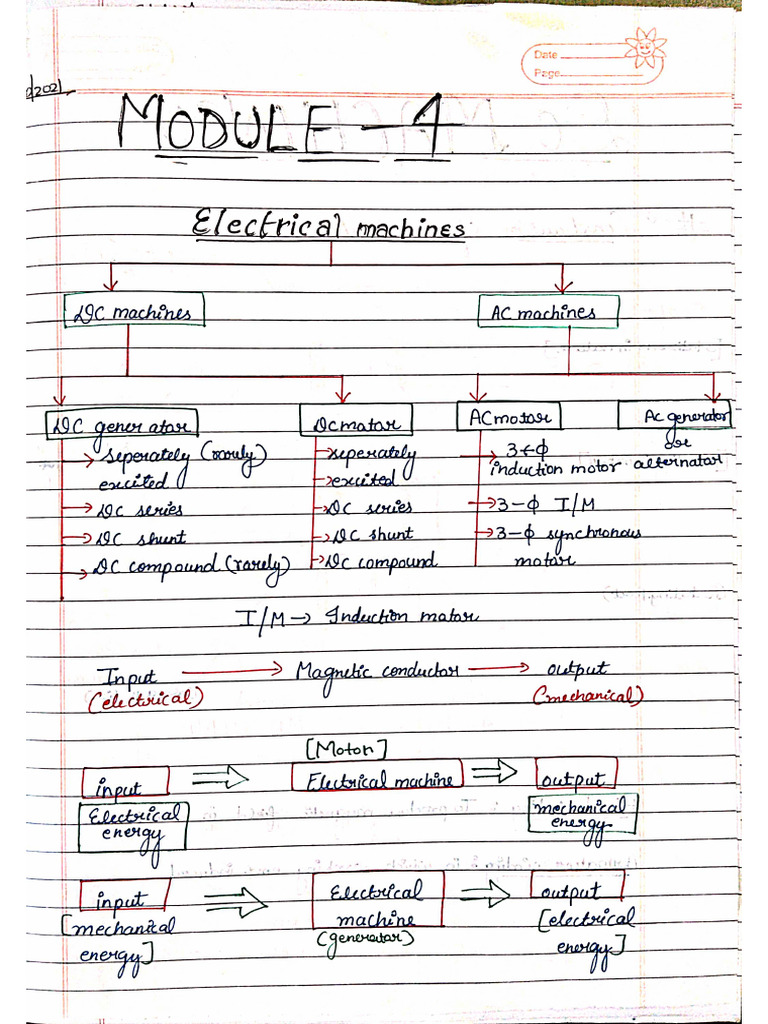 Date
Page
2021
MODULE - 4
Electrical machines
DC machines AC machines
DC generator DC motor AC motor AC generator
or
alternator
seperately (rarely)
excited
DC series
DC shunt
DC compound (rarely)
seperately
excited
DC series
DC shunt
DC compound
induction motor
3-Φ I/M
3-Φ synchronous
motor
I/M → Induction motor
Input → Magnetic conductor → output
(electrical) (mechanical)
[Motor]
input ⇒ Electrical machine ⇒ output
Electrical
energy
mechanical
energy
input ⇒ Electrical
machine ⇒ output
[mechanical
energy]
(generator)
[electrical
energy]